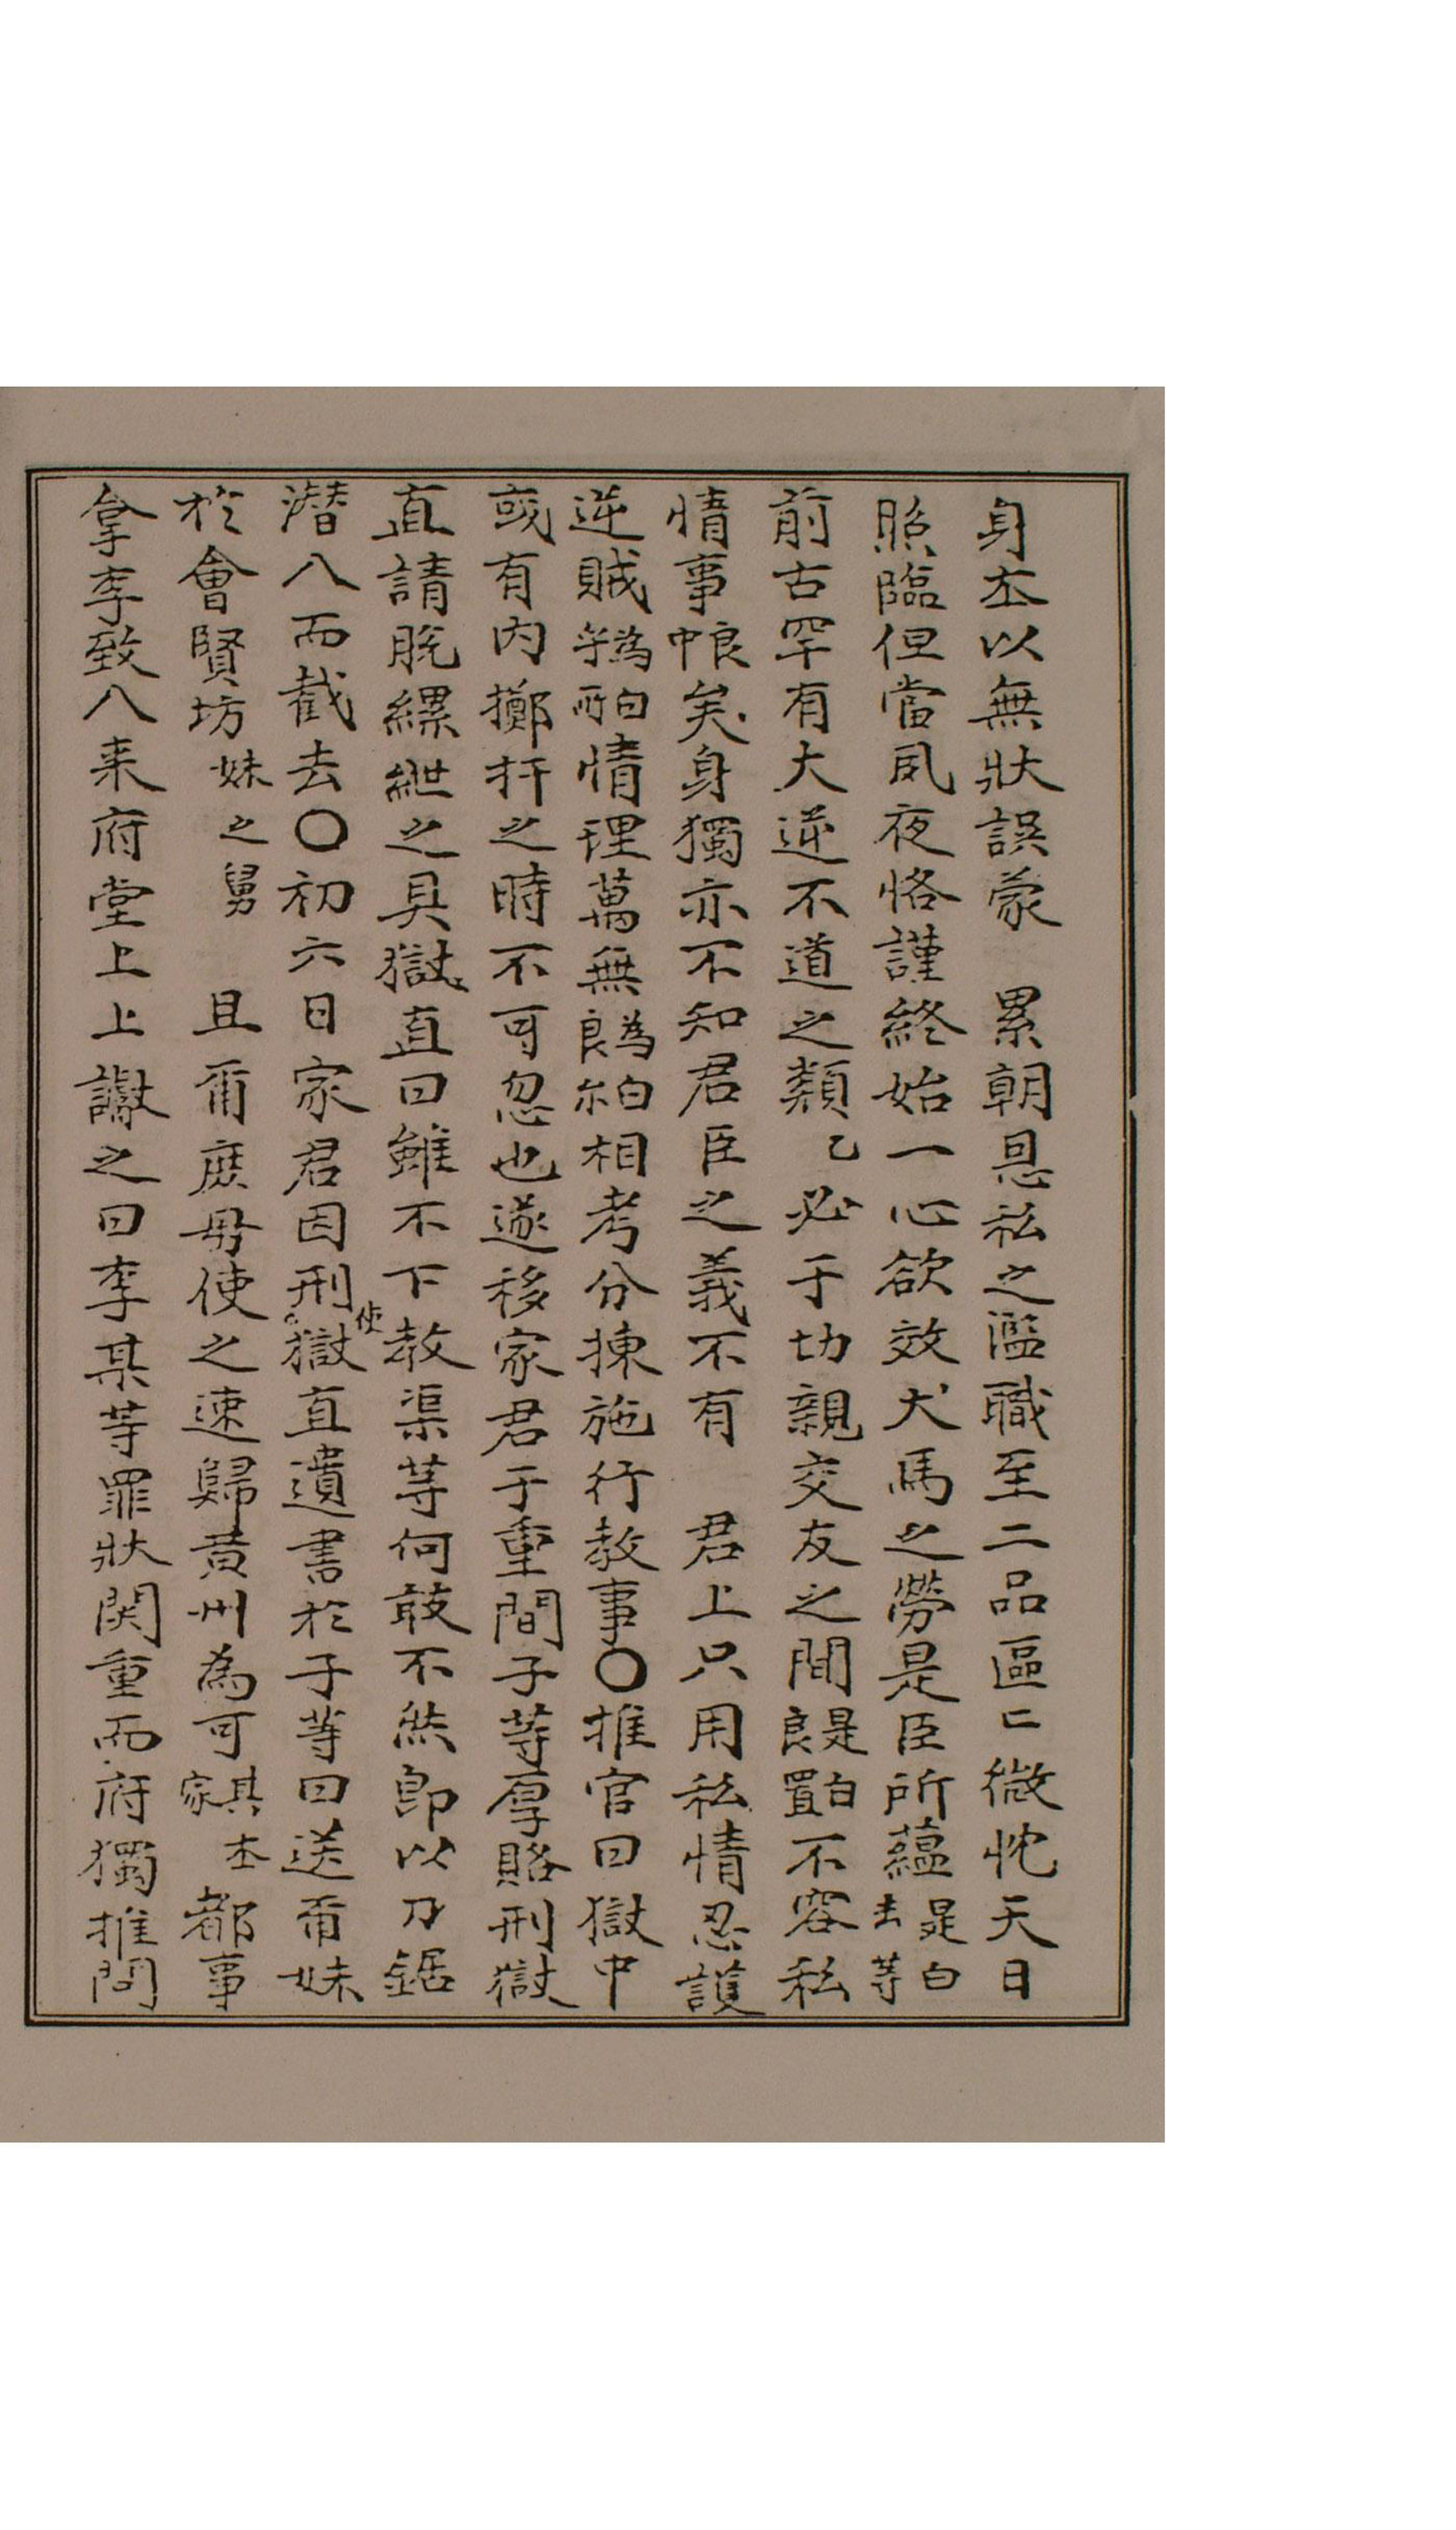 身㐀以無狀誤蒙　累朝恩私之濫職至二品區〻微忱天日
照臨但當夙夜恪謹終始一心欲效犬馬之勞是臣所蘊是白去等
前古罕有大逆不道之類乙必于切親交友之間是良置白不容私
情事㫆良矣身獨亦不知君臣之義不有　君上只用私情忍護
逆賊爲等白而情理萬無爲良白尒相考分揀施行教事〇推官曰獄中
或有內擲扞之時不可忽也遂移家君于重間子等厚賂刑獄
直請脫縲絏之具獄直曰雖不下教渠等何敢不然卽以刀鋸
潛入而截去〇初六日家君因刑獄直使遺書於子等曰送甭妹
於會賢坊妹之舅　且甭庶母使之速歸黃州爲可其家本都事
拿李致八来府堂上上讞之曰李某等罪狀関重而府獨推問